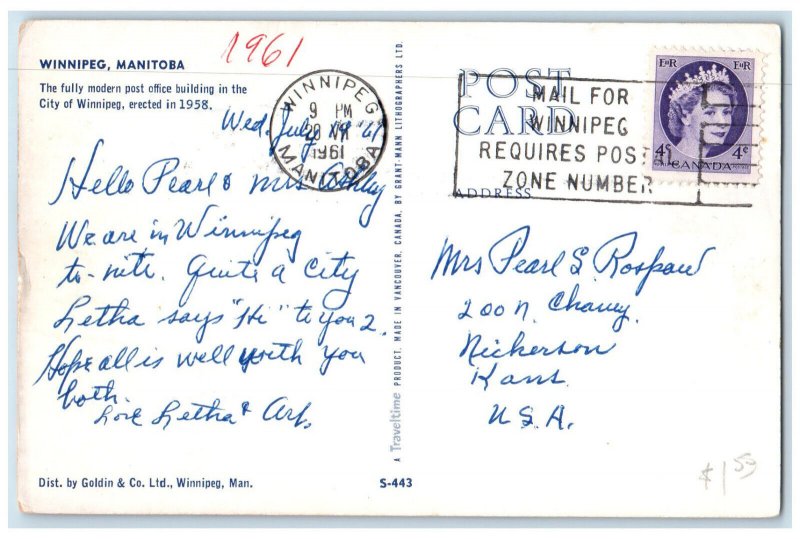 WINNIPEG, MANITOBA
The fully modern post office building in the
City of Winnipeg, erected in 1958.
1961
Wed. July 19
Hello Pearl & Mrs
We are in Winnipeg
to-nite. Quite a City
Letha says "Hi" to you 2.
Hope all is well with you
both.
Love Letha & Art.
Dist. by Goldin & Co. Ltd., Winnipeg, Man.
S-443
A Traveltime PRODUCT, MADE IN VANCOUVER, CANADA, BY GRANT-MANN LITHOGRAPHERS LTD.
WINNIPEG
9 PM
1961
MANITOBA
POST
CARD
ADDRESS
MAIL FOR
WINNIPEG
REQUIRES POSTAL
ZONE NUMBER
EIIR EIIR
4c CANADA 4c
Mrs Pearl S. Rospaw
200 N.
Nickerson
Kans.
U.S.A.
$1.59